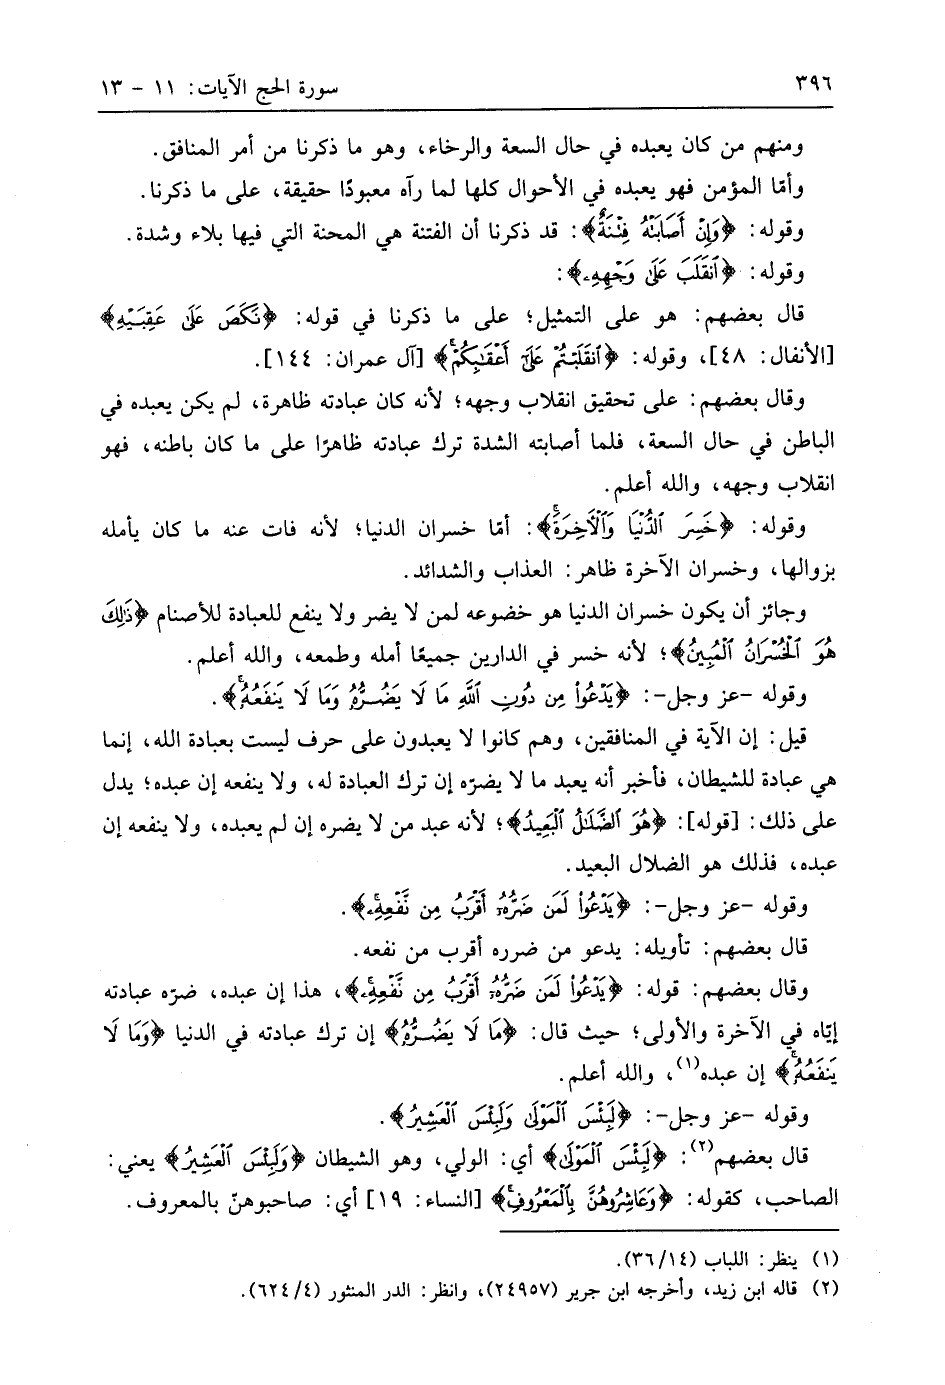 ٣٩٦
سورة الحج الآيات: ١١ - ١٣
ومنهم من كان يعبده في حال السعة والرخاء، وهو ما ذكرنا من أمر المنافق.
وأمّا المؤمن فهو يعبده في الأحوال كلها لما رآه معبودًا حقيقة، على ما ذكرنا.
وقوله: ﴿وَإِنْ أَصَابَتْهُ فِتْنَةٌ﴾: قد ذكرنا أن الفتنة هي المحنة التي فيها بلاء وشدة.
وقوله: ﴿ٱنقَلَبَ عَلَىٰ وَجْهِهِۦ﴾:
قال بعضهم: هو على التمثيل؛ على ما ذكرنا في قوله: ﴿نَكَصَ عَلَىٰ عَقِبَيْهِ﴾
[الأنفال: ٤٨]، وقوله: ﴿ٱنقَلَبْتُمْ عَلَىٰٓ أَعْقَٰبِكُمْۚ﴾ [آل عمران: ١٤٤].
وقال بعضهم: على تحقيق انقلاب وجهه؛ لأنه كان عبادته ظاهرة، لم يكن يعبده في
الباطن في حال السعة، فلما أصابته الشدة ترك عبادته ظاهرًا على ما كان باطنه، فهو
انقلاب وجهه، والله أعلم.
وقوله: ﴿خَسِرَ ٱلدُّنْيَا وَٱلْءَاخِرَةَۚ﴾: أمّا خسران الدنيا؛ لأنه فات عنه ما كان يأمله
بزوالها، وخسران الآخرة ظاهر: العذاب والشدائد.
وجائز أن يكون خسران الدنيا هو خضوعه لمن لا يضر ولا ينفع للعبادة للأصنام ﴿ذَٰلِكَ
هُوَ ٱلْخُسْرَانُ ٱلْمُبِينُ﴾؛ لأنه خسر في الدارين جميعًا أمله وطمعه، والله أعلم.
وقوله -عز وجل-: ﴿يَدْعُوا۟ مِن دُونِ ٱللَّهِ مَا لَا يَضُرُّهُۥ وَمَا لَا يَنفَعُهُۥۚ﴾.
قيل: إن الآية في المنافقين، وهم كانوا لا يعبدون على حرف ليست بعبادة الله، إنما
هي عبادة للشيطان، فأخبر أنه يعبد ما لا يضرّه إن ترك العبادة له، ولا ينفعه إن عبده؛ يدل
على ذلك: [قوله]: ﴿هُوَ ٱلضَّلَٰلُ ٱلْبَعِيدُ﴾؛ لأنه عبد من لا يضره إن لم يعبده، ولا ينفعه إن
عبده، فذلك هو الضلال البعيد.
وقوله -عز وجل-: ﴿يَدْعُوا۟ لَمَن ضَرُّهُۥٓ أَقْرَبُ مِن نَّفْعِهِۦۚ﴾.
قال بعضهم: تأويله: يدعو من ضرره أقرب من نفعه.
وقال بعضهم: قوله: ﴿يَدْعُوا۟ لَمَن ضَرُّهُۥٓ أَقْرَبُ مِن نَّفْعِهِۦۚ﴾، هذا إن عبده، ضرّه عبادته
إيّاه في الآخرة والأولى؛ حيث قال: ﴿مَا لَا يَضُرُّهُۥ﴾ إن ترك عبادته في الدنيا ﴿وَمَا لَا
يَنفَعُهُۥۚ﴾ إن عبده(١)، والله أعلم.
وقوله -عز وجل-: ﴿لَبِئْسَ ٱلْمَوْلَىٰ وَلَبِئْسَ ٱلْعَشِيرُ﴾.
قال بعضهم(٢): ﴿لَبِئْسَ ٱلْمَوْلَىٰ﴾ أي: الولي، وهو الشيطان ﴿وَلَبِئْسَ ٱلْعَشِيرُ﴾ يعني:
الصاحب، كقوله: ﴿وَعَاشِرُوهُنَّ بِٱلْمَعْرُوفِۚ﴾ [النساء: ١٩] أي: صاحبوهنّ بالمعروف.
(١) ينظر: اللباب (٣٦/١٤).
(٢) قاله ابن زيد، وأخرجه ابن جرير (٢٤٩٥٧)، وانظر: الدر المنثور (٦٢٤/٤).